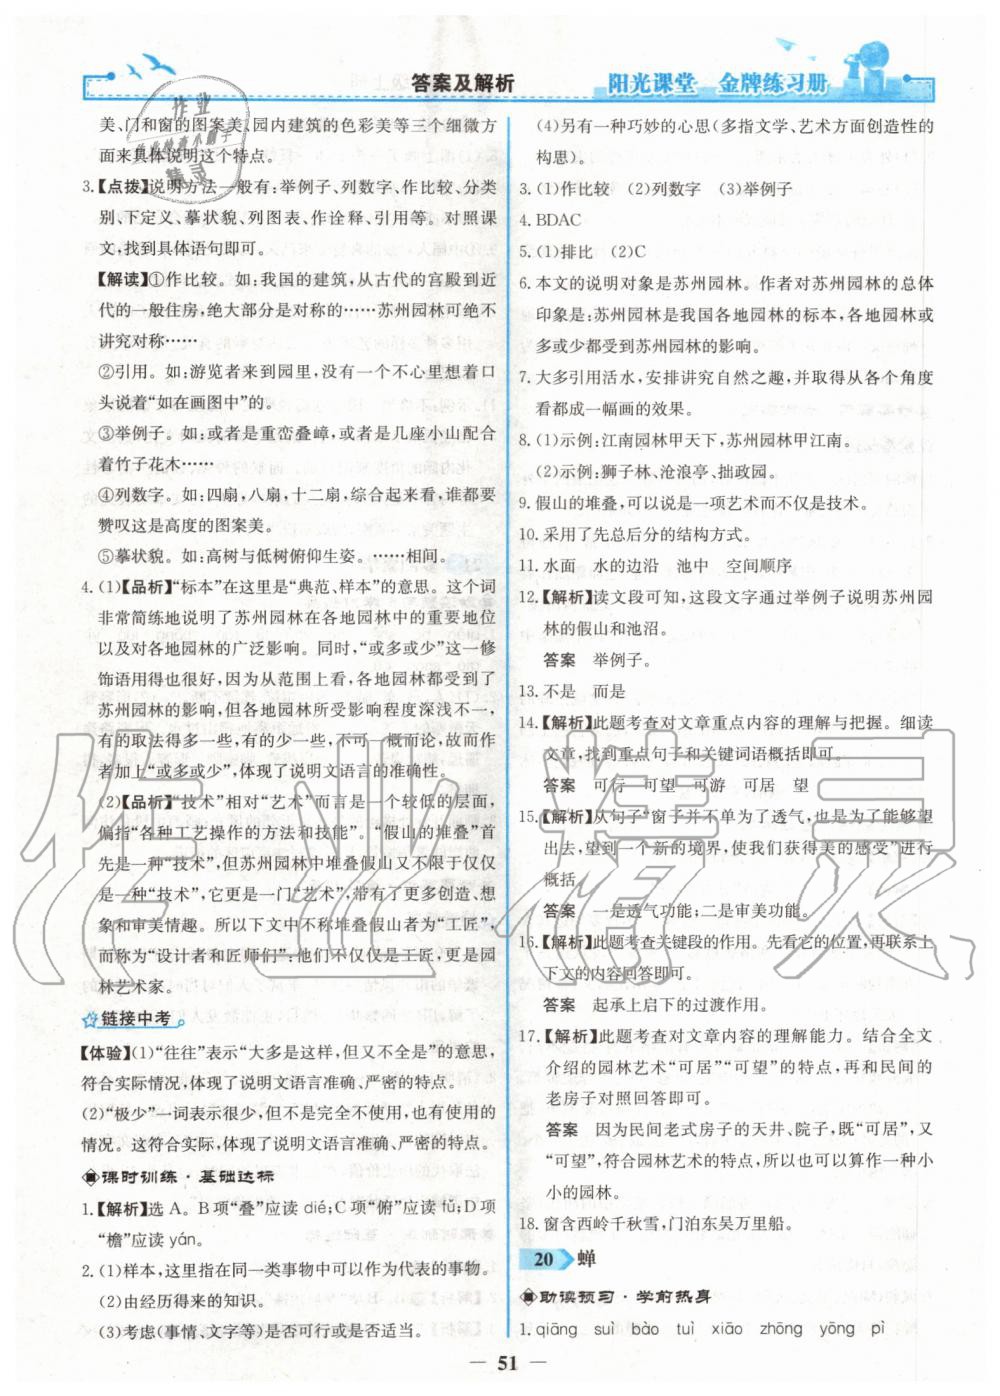 答案及解析
阳光课堂 金牌练习册
美、门和窗的图案美、园内建筑的色彩美等三个细微方
面来具体说明这个特点。
3.【点拨】说明方法一般有:举例子、列数字、作比较、分类
别、下定义、摹状貌、列图表、作诠释、引用等。对照课
文,找到具体语句即可。
【解读】①作比较。如:我国的建筑,从古代的宫殿到近
代的一般住房,绝大部分是对称的……苏州园林可绝不
讲究对称……
②引用。如:游览者来到园里,没有一个不心里想着口
头说着“如在画图中”的。
③举例子。如:或者是重峦叠嶂,或者是几座小山配合
着竹子花木……
④列数字。如:四扇,八扇,十二扇,综合起来看,谁都要
赞叹这是高度的图案美。
⑤摹状貌。如:高树与低树俯仰生姿。……相间。
4.(1)【品析】“标本”在这里是“典范、样本”的意思。这个词
非常简练地说明了苏州园林在各地园林中的重要地位
以及对各地园林的广泛影响。同时,“或多或少”这一修
饰语用得也很好,因为从范围上看,各地园林都受到了
苏州园林的影响,但各地园林所受影响程度深浅不一,
有的取法得多一些,有的少一些,不可一概而论,故而作
者加上“或多或少”,体现了说明文语言的准确性。
(2)【品析】“技术”相对“艺术”而言是一个较低的层面,
偏指“各种工艺操作的方法和技能”。“假山的堆叠”首
先是一种“技术”,但苏州园林中堆叠假山又不限于仅仅
是一种“技术”,它更是一门“艺术”,带有了更多创造、想
象和审美情趣。所以下文中不称堆叠假山者为“工匠”,
而称为“设计者和匠师们”:他们不仅仅是工匠,更是园
林艺术家。
链接中考
【体验】(1)“往往”表示“大多是这样,但又不全是”的意思,
符合实际情况,体现了说明文语言准确、严密的特点。
(2)“极少”一词表示很少,但不是完全不使用,也有使用的
情况。这符合实际,体现了说明文语言准确、严密的特点。
课时训练·基础达标
1.【解析】选 A。B 项“叠”应读 dié;C 项“俯”应读 fǔ;D 项
“檐”应读 yán。
2.(1)样本,这里指在同一类事物中可以作为代表的事物。
(2)由经历得来的知识。
(3)考虑(事情、文字等)是否可行或是否适当。
(4)另有一种巧妙的心思(多指文学、艺术方面创造性的
构思)。
3.(1)作比较 (2)列数字 (3)举例子
4. BDAC
5.(1)排比 (2)C
6. 本文的说明对象是苏州园林。作者对苏州园林的总体
印象是:苏州园林是我国各地园林的标本,各地园林或
多或少都受到苏州园林的影响。
7. 大多引用活水,安排讲究自然之趣,并取得从各个角度
看都成一幅画的效果。
8.(1)示例:江南园林甲天下,苏州园林甲江南。
(2)示例:狮子林、沧浪亭、拙政园。
9. 假山的堆叠,可以说是一项艺术而不仅是技术。
10. 采用了先总后分的结构方式。
11. 水面 水的边沿 池中 空间顺序
12.【解析】读文段可知,这段文字通过举例子说明苏州园
林的假山和池沼。
答案 举例子。
13. 不是 而是
14.【解析】此题考查对文章重点内容的理解与把握。细读
文章,找到重点句子和关键词语概括即可。
答案 可行 可望 可游 可居 望
15.【解析】从句子“窗子并不单为了透气,也是为了能够望
出去,望到一个新的境界,使我们获得美的感受”进行
概括。
答案 一是透气功能;二是审美功能。
16.【解析】此题考查关键段的作用。先看它的位置,再联系上
下文的内容回答即可。
答案 起承上启下的过渡作用。
17.【解析】此题考查对文章内容的理解能力。结合全文
介绍的园林艺术“可居”“可望”的特点,再和民间的
老房子对照回答即可。
答案 因为民间老式房子的天井、院子,既“可居”,又
“可望”,符合园林艺术的特点,所以也可以算作一种小
小的园林。
18. 窗含西岭千秋雪,门泊东吴万里船。
20 蝉
助读预习·学前热身
1. qiāng suì bào tuì xiāo zhōng yōng pì
— 51 —
作业精灵